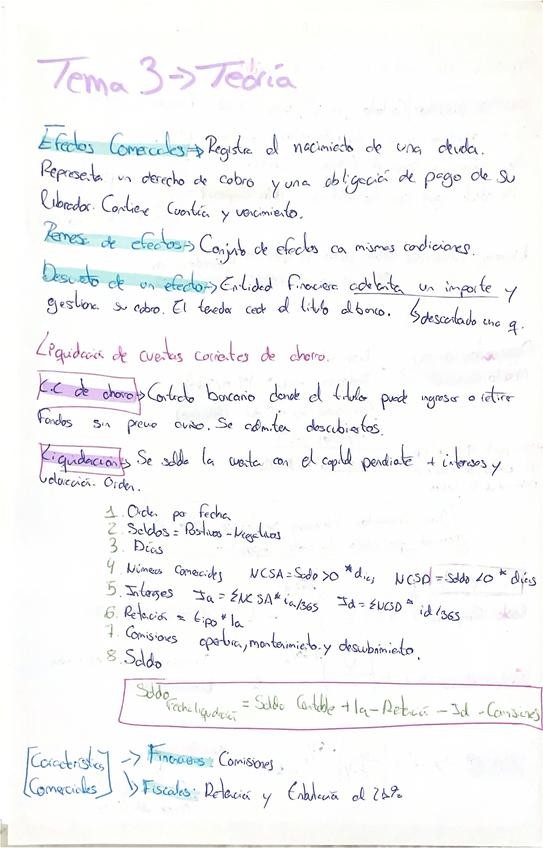 Tema 3 -> Teoría
Efectos Comerciales -> Registra el nacimiento de una deuda.
Representa un derecho de cobro y una obligación de pago de su
librador. Contiene cuantía y vencimiento.
Remesa de efectos -> Conjunto de efectos ca mismas condiciones.
Descuento de un efecto -> Entidad financiera adelanta un importe y
gestiona su cobro. El tenedor cede el título al banco. ↳ descontado una q.
Liquidación de cuentas corrientes de ahorro.
C.C de ahorro -> Contrato bancario donde el titular puede ingresar o retirar
fondos sin previo aviso. Se admiten descubiertos.
Liquidación -> Se salda la cuenta con el capital pendiente + intereses y
Orden.
1. Orden por fecha
2. Saldos = Positivos - Negativos
3. Días
4 Números Comerciales NCSA = Saldo >0 * días NCSD = Saldo <0 * días
5. Intereses Ia = ΣNCSA * ia/365 Id = ΣNCSD * id/365
6. Retención = tipo * Ia
7. Comisiones apertura, mantenimiento y descubrimiento.
8. Saldo
Saldo Fecha liquidación = Saldo Contable + Ia - Retención - Id - Comisiones
[Características Comerciales] -> Financieras: Comisiones.
↳ Fiscales: Retención y al